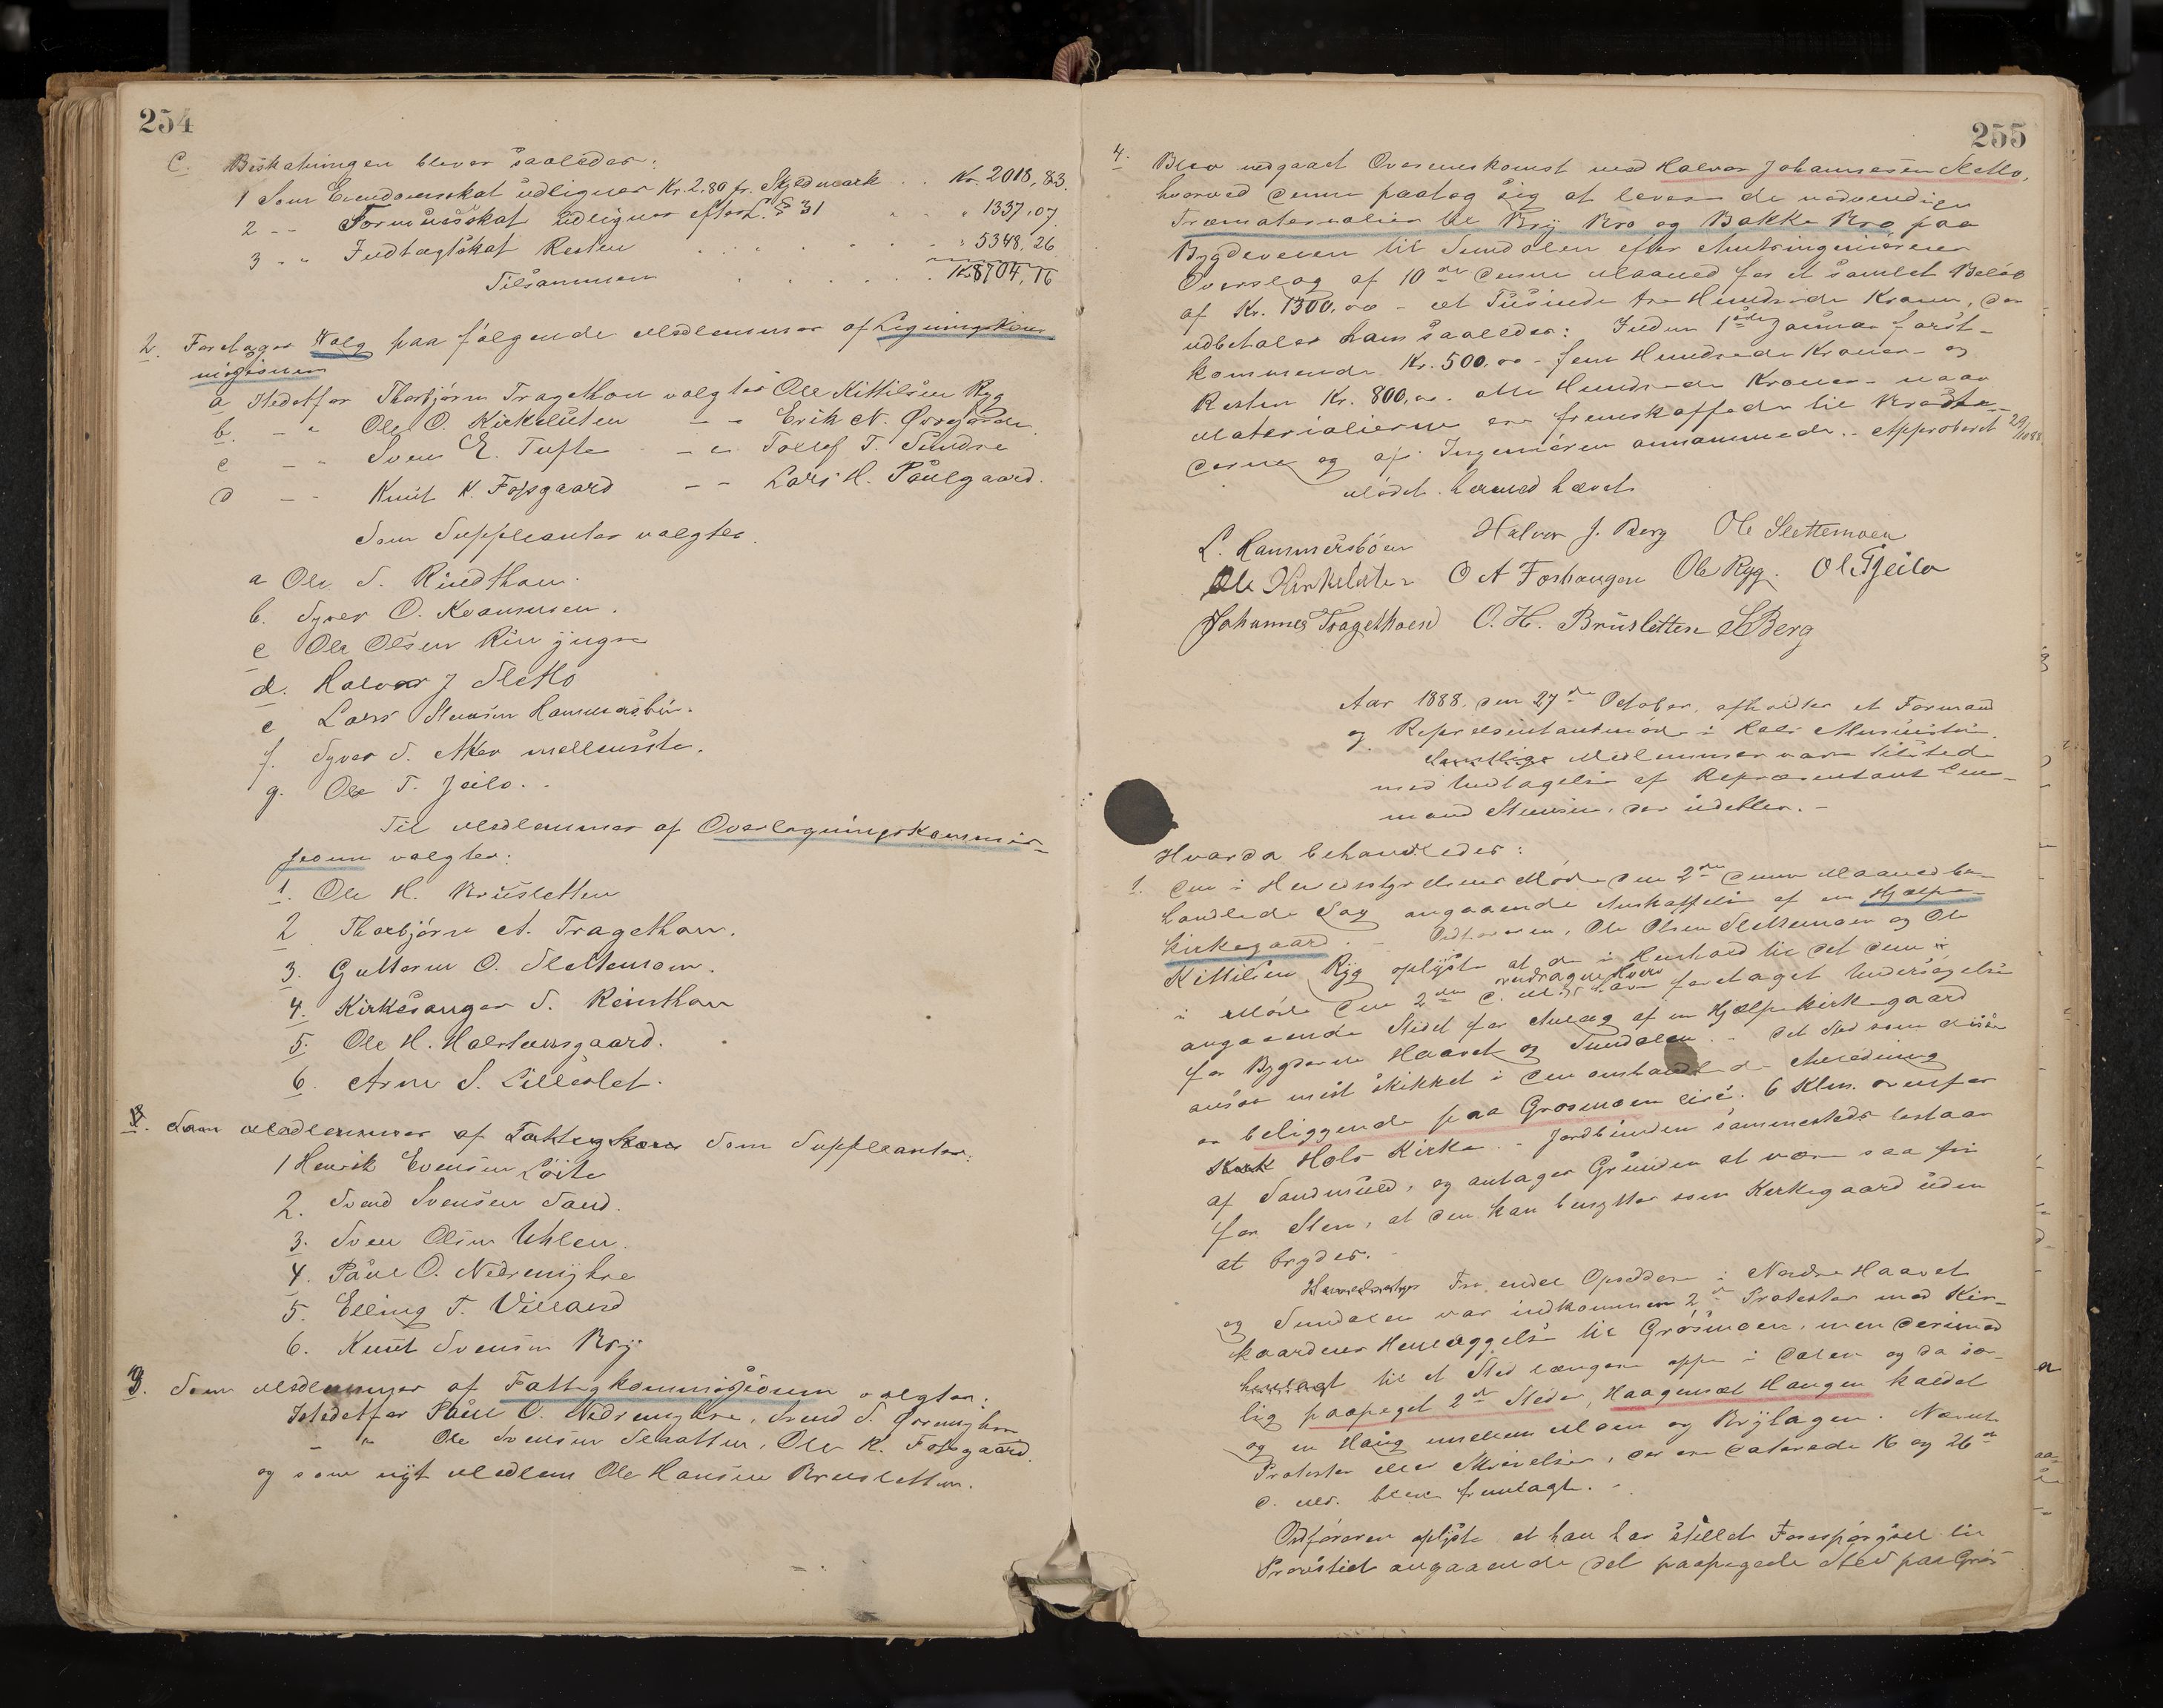 254
C. Beskatningen bliver saaledes:
1 Som Eiendomsskat udlignes Kr. 2,80 pr. Skyldmark . . Kr. 2018,83.
2 - - Formuesskat udlignes efter L. § 31 " 1337,07
3 - " Indtægtskat Resten " 5348,26
Tilsammen Kr 8704,16
2. Foretages Valg paa følgende Medlemmer af Ligningskom
misjonen
a Istedetfor Thorbjørn Tragethon valgtes Ole Kittilsen Ryg
b. - " Ole O. Kirkeluten - - Erik N. Øvregarde
c - - Sven E. Tufte - " Tollef T. Sundre
d - - Knut K. Fossgaard - - Lars H. Paulgaard.
Som Suppleanter valgtes.
a Ole S. Rindthon.
b. Syver O. Kvammen.
c Ole Olsen Rin yngre
d. Halvor J Sletto
e Lars Steensen Hammersbøn.
f. Syver S. Aker mellemste.
g. Ole T. Jeilo. .
Til Medlemmer af Overligningskommis-
sionen valgtes:
1. Ole H. Brusletten
2 Thorbjørn A. Tragethon.
3. Guttorm O. Slettemoen.
4. Kirkesanger S. Reinthon
5. Ole H. Halstensgaard.
6. Arne S. Lilleslet.
3. Som Medlemmer af Fattigkom Som Suppleanter:
1 Henrik Evensen Løite
2. Svend Svensen Sand.
3. Sven Olsen Uhlen.
4. Paul O. Nedrenyhre
5. Elling T. Villand
6. Knut Svensen Bry
3. Som Medlemmer af Fattigkommissionen valgtes:
Istedetfor Paul O. Nedrenyhre, Svend S. Øvrenyhre
- " Ole Svensen Skratten, Ole K. Fossgaard.
og som nyt Medlem Ole Hansen Brusletten.
255
4. Blev indgaaet Overenskomst med Halvor Johannesen Sletto,
hvorved denne paatog sig at levere de nødvendige
Træmaterialier til Bry Bro og Bakke Bro paa
Bygdeveien til Sundalen efter Amtsingeniørens
Overslag af 10de denne Maaned for et samlet Beløb
af Kr. 1300,00 - et Tusinde tre Hundrede Kroner, der
udbetales ham saaledes: Inden 1ste Januar først-
kommende Kr. 500,00 - fem Hundrede Kroner - og
Resten Kr. 800,00 - otte Hundrede Kroner - naar
Materialierne ere fremskaffede til Broste-
derne og af Ingeniøren annammede. - Approberet 29/10 88
Mødet hermed hævet
L. Hammersbøen Halvor J. Berg Ole Slettemoen
Ole Kirkeluten O A Foshaugen Ole Ryg. Ol Tjeilo
Johannes Tragethoen O. H. Brusletten S Berg
Aar 1888, den 27de October, afholdtes et Formand
og Repræsentantmøde i Hols
Samtlige Medlemmer vare tilstede
med Undtagelse af Repræsentant Lens-
mand Steensen, der udebler. -
Hvorda behandledes:
1. Den i Herredsstyrelsens Møde den 2den denne Maaned be-
handlede Sag angaaende Anskaffelse af en Hjælpe-
kirkegaard. - Ordføreren, Ole Olsen Slettemoen og Ole
Kittilsen Ryg oplyste at de i Henhold til det dem
overdragne Hverv
i Møde den 2den d. M. have foretaget Undersøgelse
angaaende Sted for Anlæg af en Hjælpekirkegaard
for Bygderne Haavet og Sundalen. - Det Sted som disse
ansaa mest skikket i den omhandlede Anledning
er beliggende paa Grosmoen circa 6 Klm. ovenfor
Kirk Hols Kirke. - Jordbunden sammesteds bestaar
af Sandmuld, og antages Grunden at være saa fri
for Sten, at den kan benyttes som Kirkegaard uden
at brydes. -
Fra endel Opsiddere i Nordre Haavet
og Sundalen var indkommen 2de Protester mod Kir-
kaardens Henlæggelse til Grosmoen, men derimod
henlagt til et Sted længere oppe i Dalen og da sær-
lig paapeget 2de Steder, Haagensæt Haugen kaldet
og en Haug mellem Moen og Brylagen. Nævnte
Protester eller Skrivelser, der ere daterede 16 og 26de
d. Md. bleve fremlagt. -
Ordføreren oplyste at han har stillet Forespørgsel til
Provstiet angaaende det paapegede Sted paa Gros